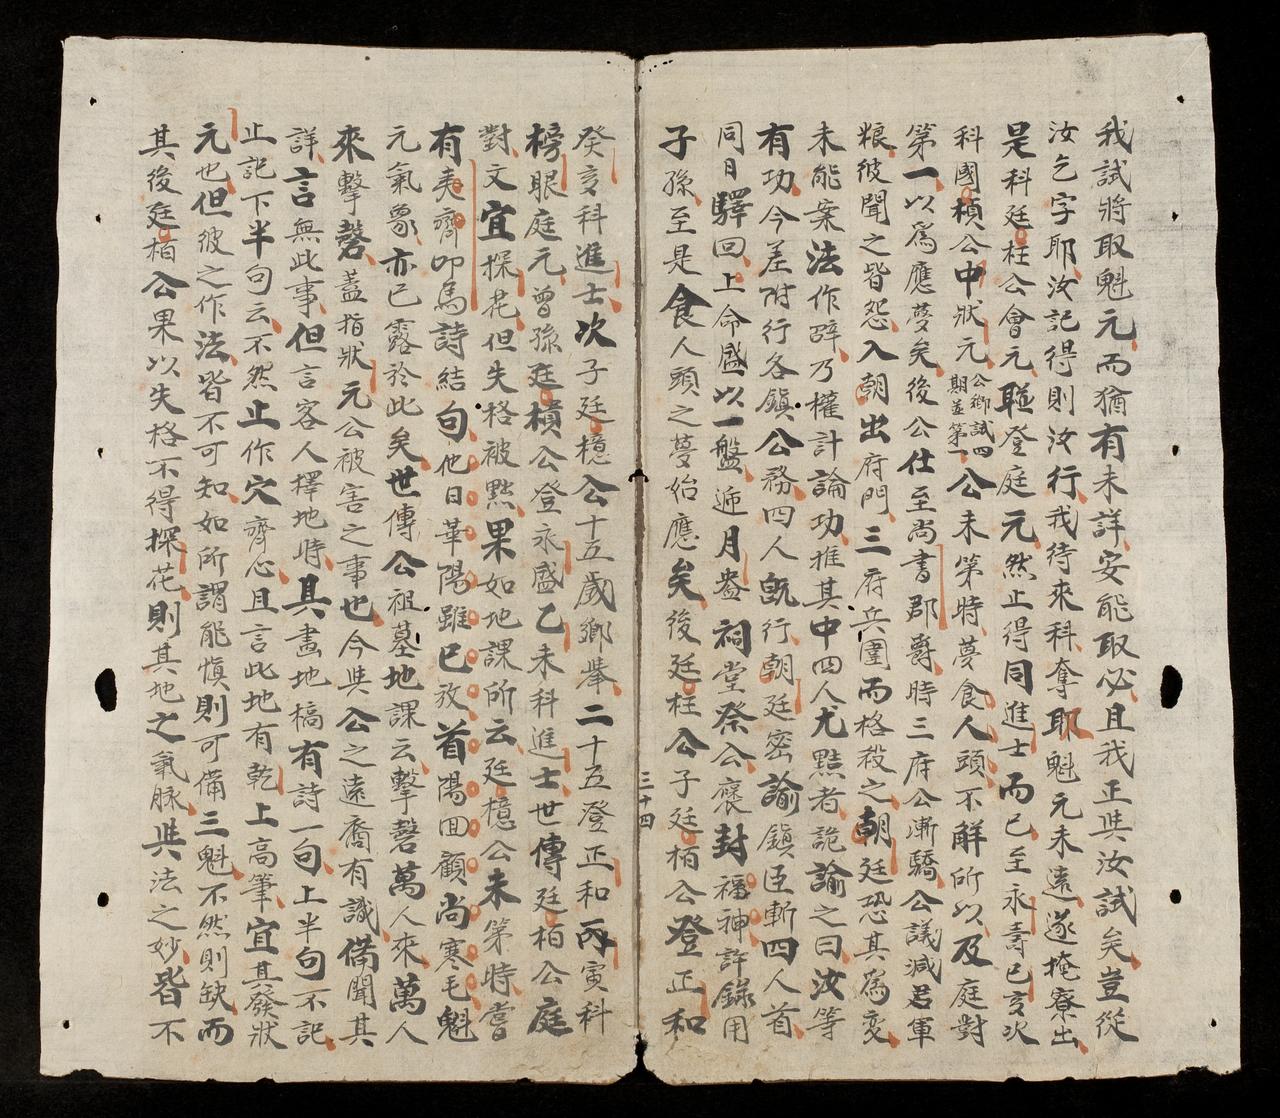 我試將取魁元而猶有未詳安能取必且我正與汝試矣豈從
汝乞字耶汝記得則汝行我待來科奪取魁元未遠遂掩寮出
是科廷柱公會元聯登庭元然止得同進士而已至永壽己亥次
科國楨公中狀元公鄉試四期並第一公未第時夢食人頭不解所以及庭對
第一以爲應夢矣後公仕至尚書郡爵時三府公漸驕公議減君軍
粮彼聞之皆怨入朝出府門三府兵圍而格殺之朝廷恐其爲變
未能案法作辟乃權計論功推其中四人尤黠者詭諭之曰汝等
有功今差附行各鎮公務四人旣行朝廷密諭鎮臣斬四人首
同日驛回上命盛以一盤遞月盎祠堂祭公褒封福神許錄用
子孫至是食人頭之夢始應矣後廷柱公子廷栢公登正和
三十四
癸亥科進士次子廷檍公十五歲鄉舉二十五登正和丙寅科
榜眼庭元曾孫廷樻公登永盛乙未科進士世傳廷栢公庭
對文宜探花但失格被黜果如地課所云廷檍公未第時嘗
有夷齊叩馬詩結句他日華陽雖已放首陽回顧尚寒毛魁
元氣象亦已露於此矣世傳公祖墓地課云擊磬萬人來萬人
來擊磬蓋指狀元公被害之事也今與公之遠裔有識備聞其
詳言無此事但言客人擇地時其畫地槁有詩一句上半句不記
止記下半句云不然止作穴齊心且言此地有乾上高筆宜其發狀
元也但彼之作法皆不可知如所謂能愼則可備三魁不然則缺而
其後廷栢公果以失格不得探花則其地之氣脉與法之妙皆不